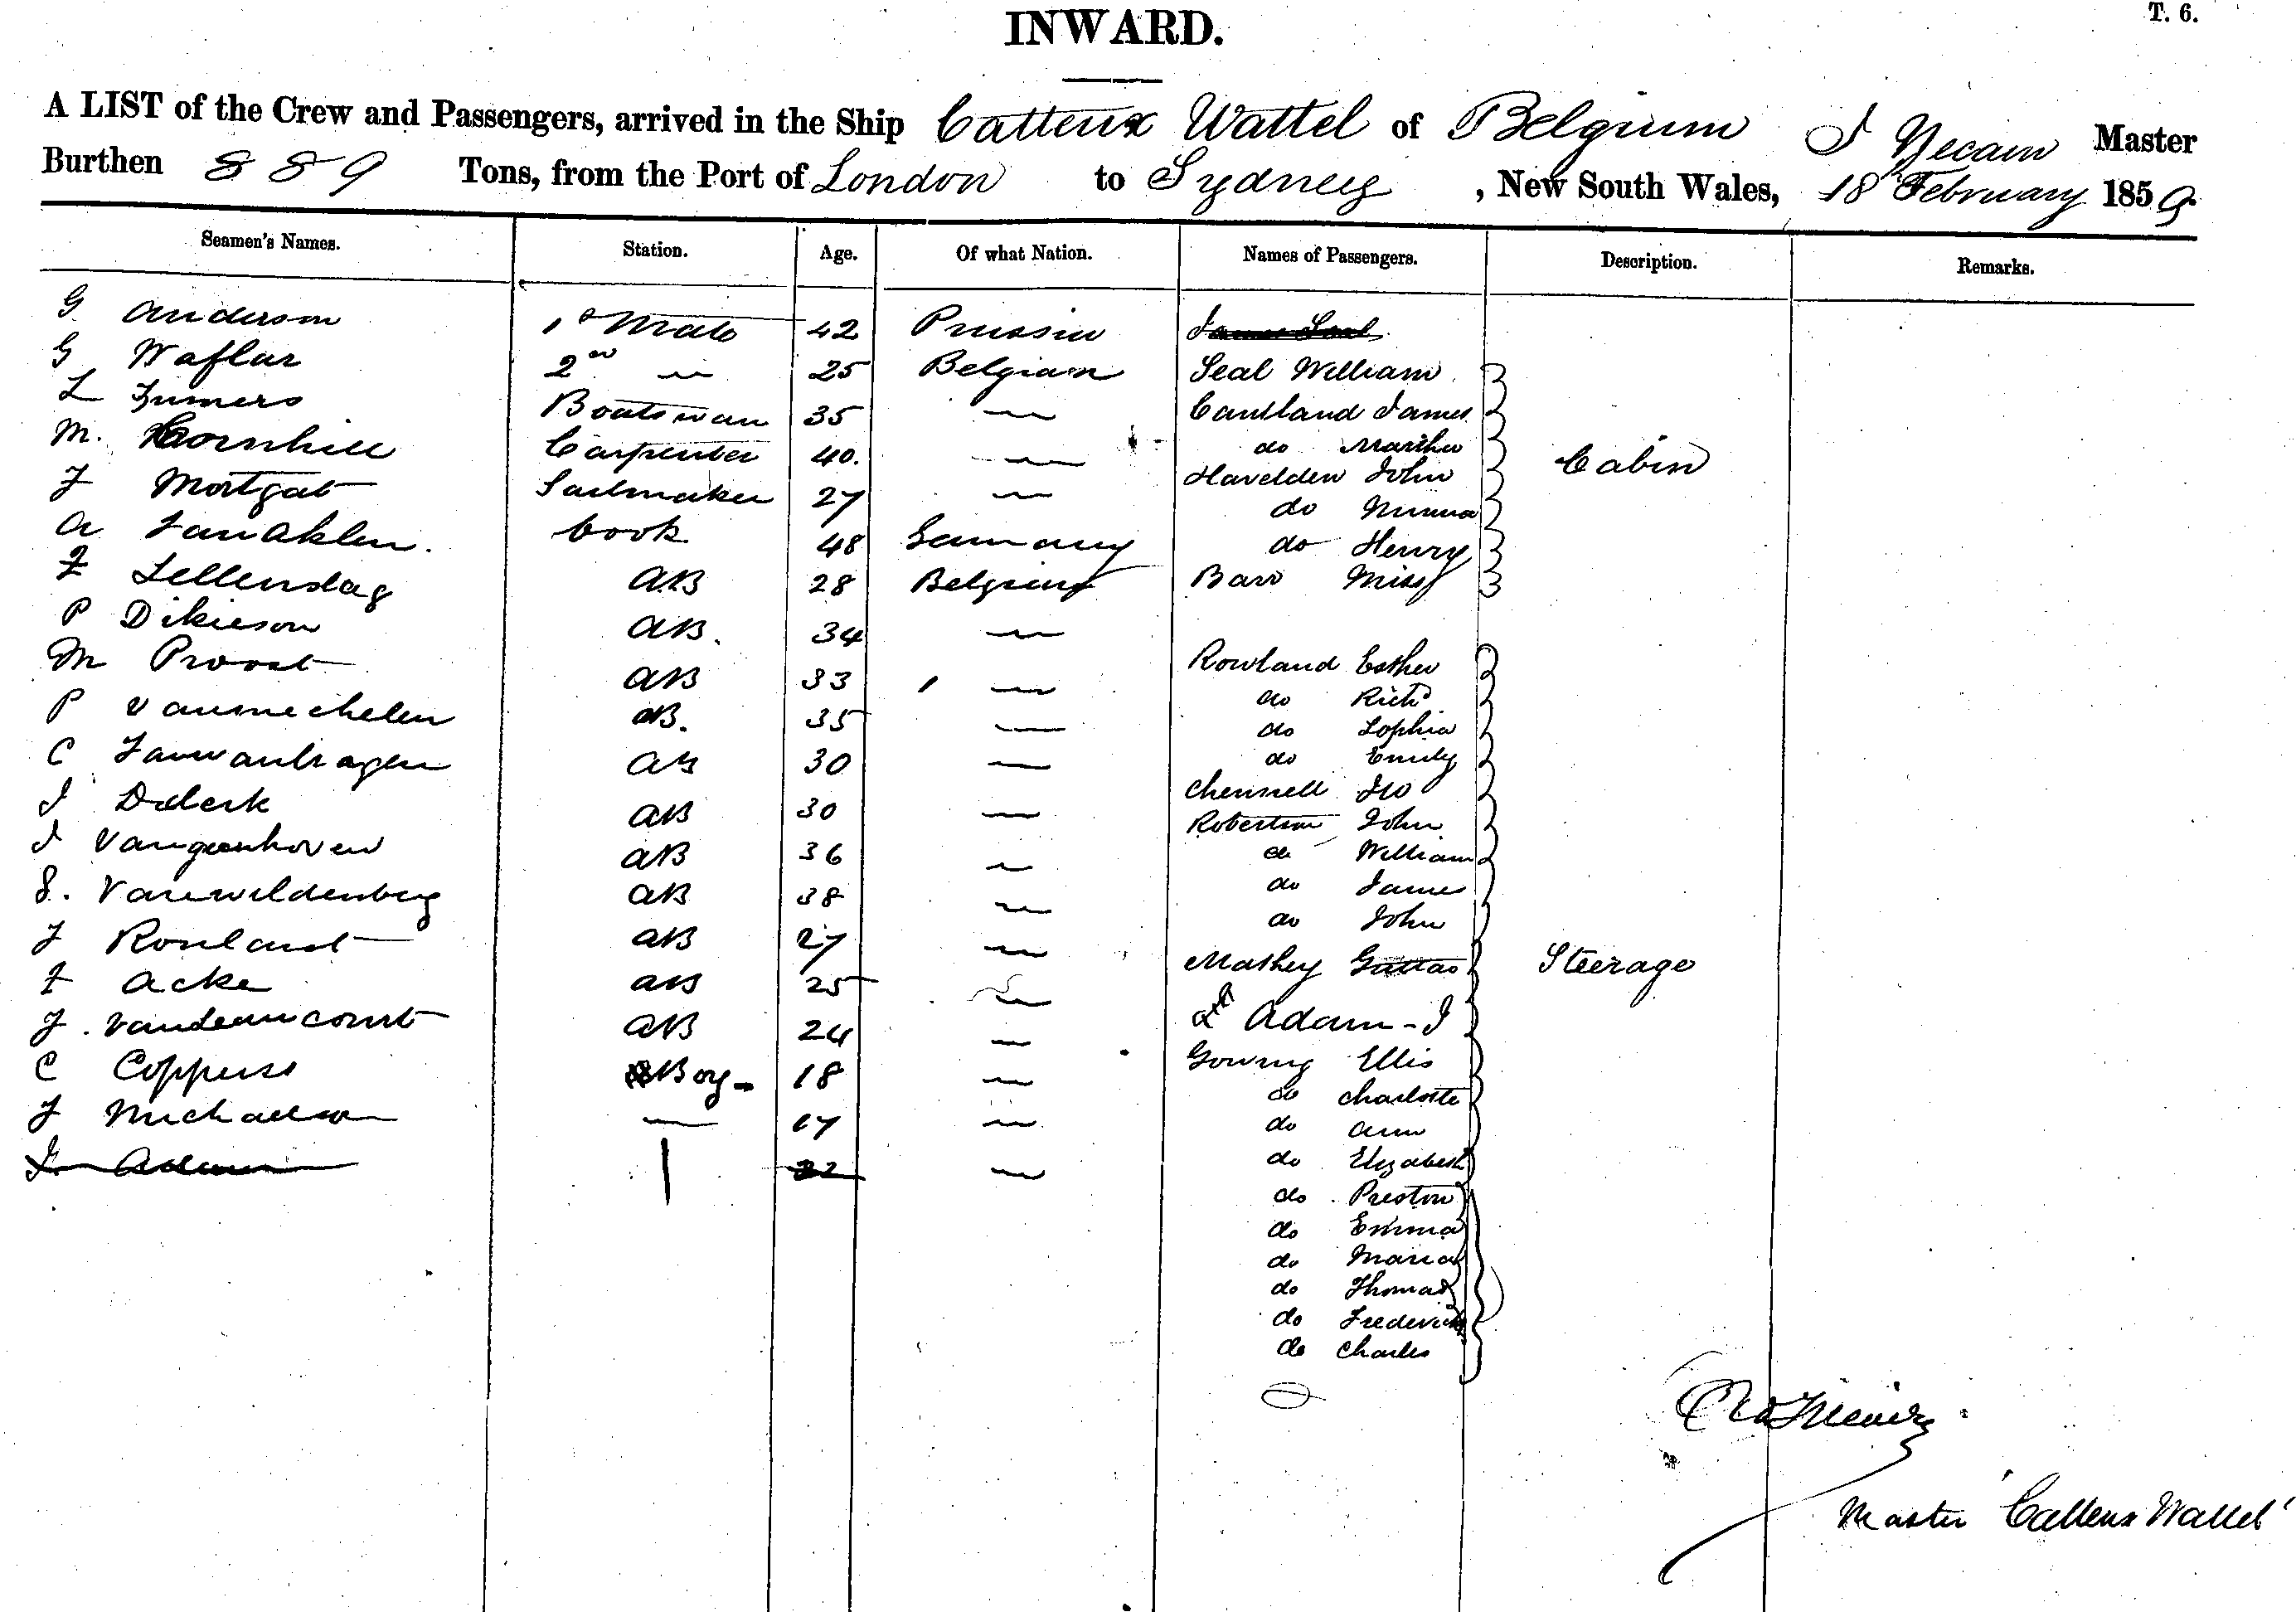 INWARD.
T. 6.
A LIST of the Crew and Passengers, arrived in the Ship Catteux Wattel of Belgium J Necain Master
Burthen 889 Tons, from the Port of London to Sydney, New South Wales, 18 February 1859.
Seamen's Names. Station. Age. Of what Nation. Names of Passengers. Description. Remarks.
G Anderson 1st Mate 42 Prussia
G Waflar 2nd 〃 25 Belgian Seal William
L Zumers Boatswan 35 〃 Cautland James
M. Cornhill Carpenter 40. 〃 do Martha
J Mortgat Sailmaker 27 〃 Havelden John Cabin
do
A VanAklen. Cook 48 Gamany do Henry
F Lellenslag AB 28 Belgium Barr Miss
P Dikieson AB. 34 〃
M Proost AB 33 〃 Rowland Esther
do Richd
P Vanmechelen AB. 35 〃 do Sophia
C AB 30 〃 do Emily
J Delerk AB 30 〃 Chennell Jno
Robertson John
J Vangenhoven AB 36 〃 do William
S. Vanwildenberg AB 38 〃 do James
do John
J Roulandt AB 27 〃 Mathey Steerage
F Acke AB 25 〃
J. Vandeancourt AB 24 〃 Adam - J
C Coppens Boy - 18 〃 Gowing Ellis
do Charlotte
J Michaelson 〃 17 〃 do Ann
J. Adam 22 〃 do Elizabeth
do Preston
do Emma
do Maria
do Thomas
do Frederick
do Charles
Master 'Catteux Wattel'